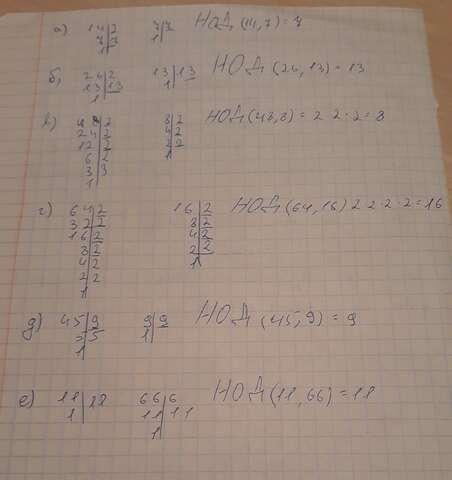 а) 14|2 7|7 НОД(14,7)=7
7|7 1
1
б) 26|2 13|13 НОД(26,13)=13
13|13 1
1
в) 48|2 8|2 НОД(48,8)=2·2·2=8
24|2 4|2
12|2 2|2
6|2 1
3|3
1
г) 64|2 16|2 НОД(64,16)2·2·2·2=16
32|2 8|2
16|2 4|2
8|2 2|2
4|2 1
2|2
1
д) 45|9 9|9 НОД(45,9)=9
5|5 1
1
е) 11|11 66|6 НОД(11,66)=11
1 11|11
1